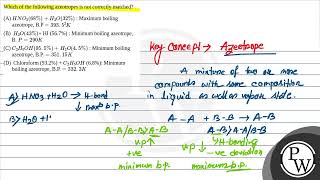 Which of the following azeotropes is not correctly matched?
(A) HNO₃(68%) + H₂O(32%) : Maximum boiling
azeotrope, B.P = 393.5K
(B) H₂O(43%)+ HI (56.7%) : Minimum boiling azeotrope,
B.P = 290K
(C) C₂H₅OH(95.5%) + H₂O(4.5%) : Minimum boiling
azeotrope, B.P = 351.15K
(D) Chloroform (93.2%) + C₂H₅OH (6.8%): Minimum
boiling azeotrope, B.P. = 332.3K
Key Concept → Azeotrope
A mixture of two or more
compounds with same composition
in liquid as well as vapour state.
A) HNO₃ + H₂O → H-bond
↓
max b.p.
B) H₂O + H
A-A + B-B → A-B
A-A/B-B > A-B
V.P ↑
+ve
minimum b.p.
A-B > A-A, B-B
V.P ↓ H-bonding
-ve deviation
maximum b.p.
PW